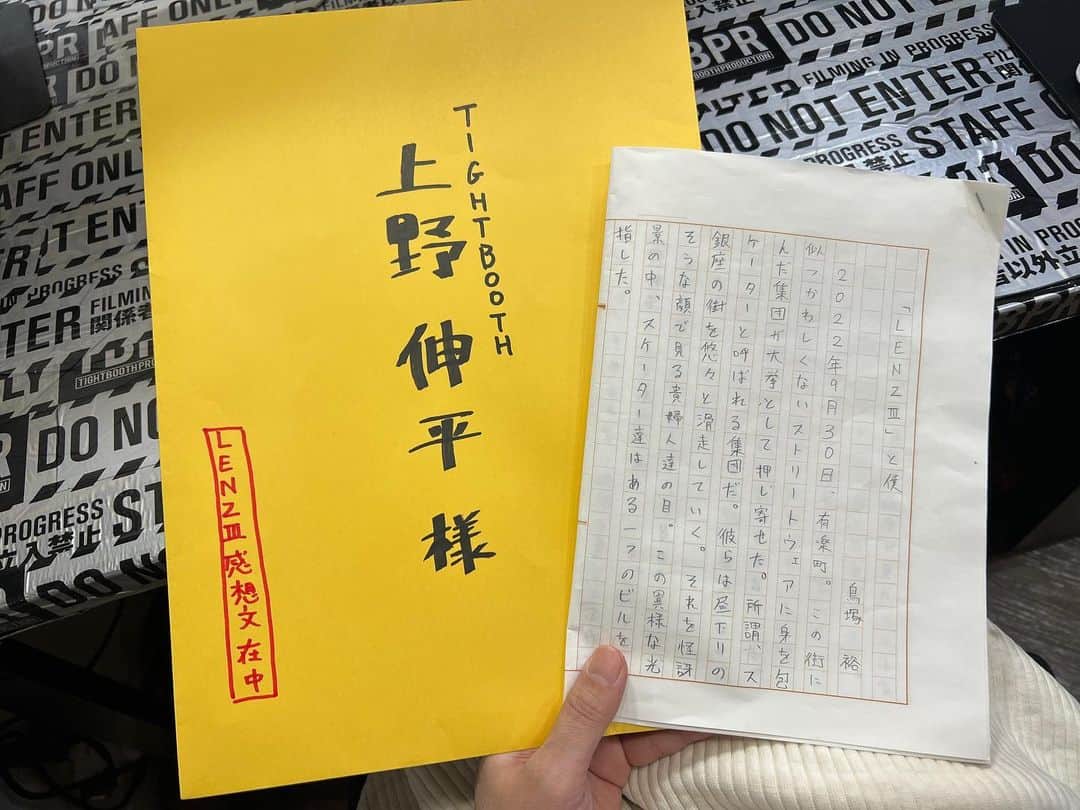 TIGHTBOOTH
上野 伸平 様
LENZⅢ 感想文 在中
「LENZⅢ」と僕
鳥塚 裕
2022年9月30日、有楽町。この街に
似つかわしくないストリートウェアに身を包
んだ集団が大挙として押し寄せた。所謂、ス
ケーターと呼ばれる集団だ。彼らは昼下りの
銀座の街を悠々と滑走していく。それを怪訝
そうな顔で見る貴婦人達の目。この異様な光
景の中、スケーター達はある一つのビルを
指した。
DO NOT ENTER
STAFF ONLY
FILMING IN PROGRESS
関係者以外立入禁止
TBPR
TIGHTBOOTHPRODUCTION